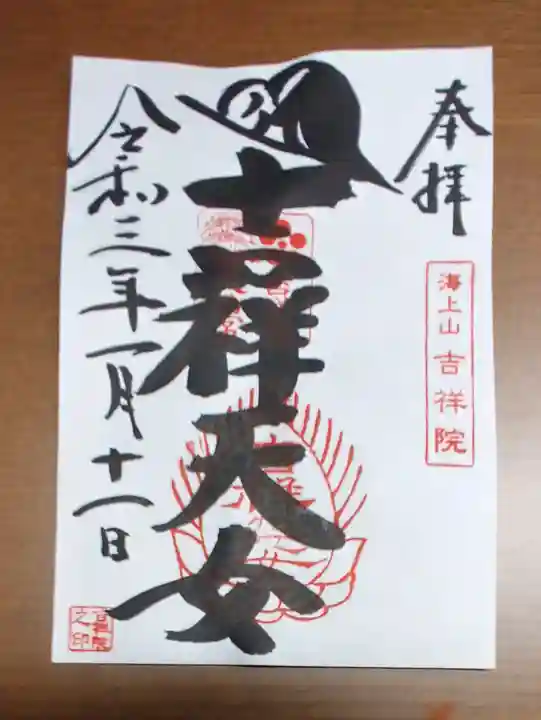 奉拝
海上山 吉祥院
吉祥天女
令和三年一月十一日
吉祥院
之印